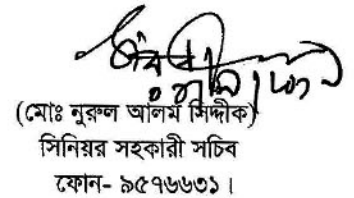 (মোঃ নুরুল আলম সিদ্দীক)
সিনিয়র সহকারী সচিব
ফোন- ৯৫৭৬৬৩১।